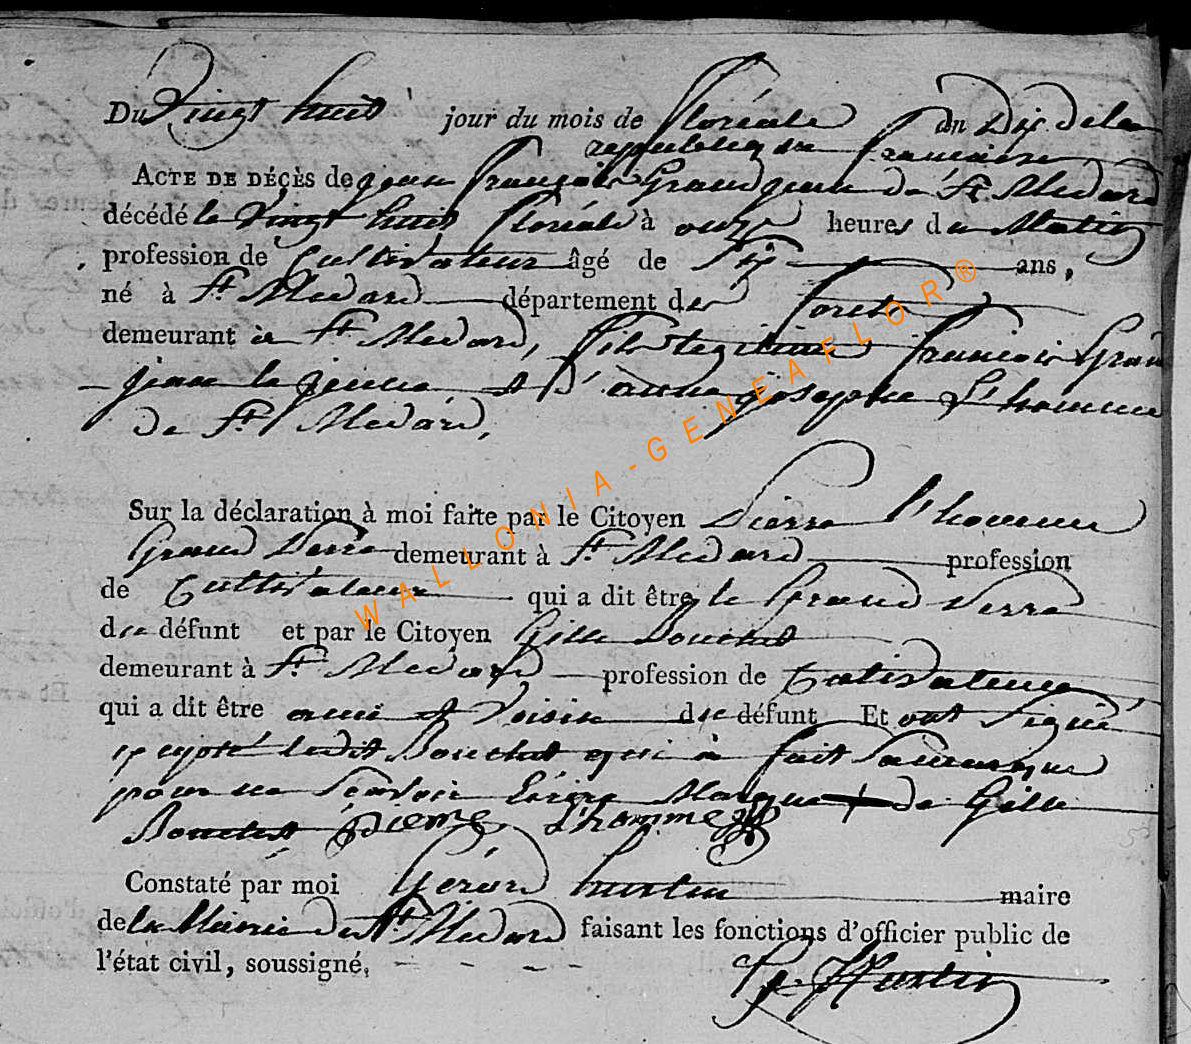 Du Vingt huit jour du mois de floréale an Dix de la
republique francaise
ACTE DE DÉCÈS de jean françois Grandjean de St. Medard
décédé le Vingt huit floréale à onze heures du Matin
profession de Cultivateur âgé de Six ans,
né à St. Medard département des forets
demeurant à St Medard, fils legitime francois Grand
jean le jeune et d'anne josephe L'homme
de St Medard,
Sur la déclaration à moi faite par le Citoyen Pierre l'homme
Grand Perre demeurant à St. Medard profession
de Cultivateur qui a dit être le Grand Perre
du défunt et par le Citoyen Gille Bouchet
demeurant à St. Medard profession de Cultivateur
qui a dit être ami et Voisin du défunt Et ont Signé
excepté ledit Bouchet qui à fait Sa marque
pour ne Scavoir Ecrire Marque + de Gille
Bouchet pierre l'homme
Constaté par moi Gérard hustin maire
de la Mairie de St Medard faisant les fonctions d'officier public de
l'état civil, soussigné.
G. Hustin
WALLONIA-GENEAFLOR®